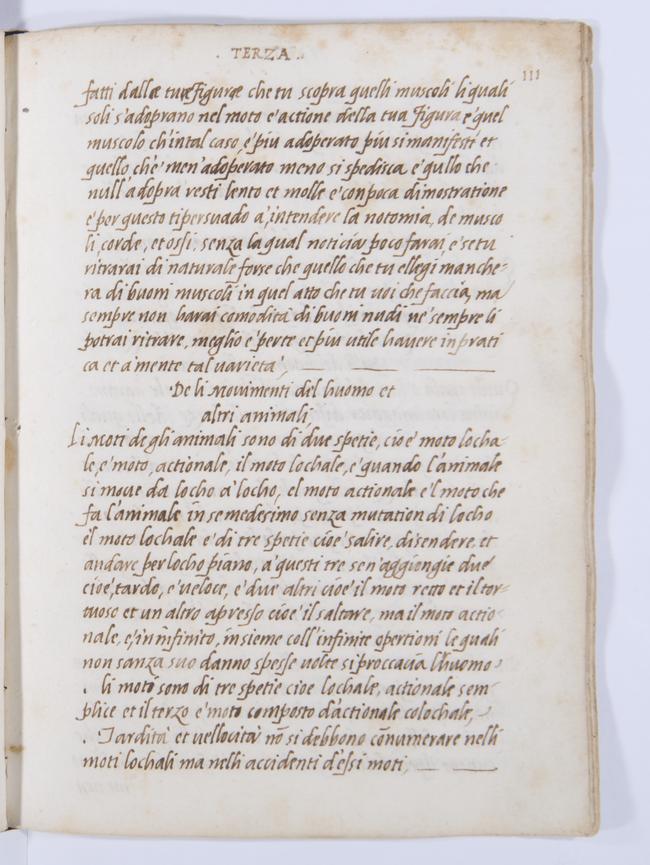 . TERZA .
111
fatti dalle tue figure che tu scopra quelli muscoli li quali
soli s'adoprano nel moto e actione della tua figura e quel
muscolo ch'in tal caso, e piu adoperato piu si manifesti et
quello, ch'e men'adoperato meno si spedisca e qullo che
null'adopra resti lento et molle e con poca dimostratione
e per questo ti persuado a, intendere la notomia, de musco
li, corde, et ossi, senza la qual noticia poco farai, e se tu
ritrarai di naturale forse che quello che tu ellegi manche-
ra di buoni muscoli in quel atto che tu voi che faccia, ma
sempre non harai comodita di buoni nudi ne sempre li
potrai ritrare, meglio e per te et piu utile havere in prati
ca et a mente tal varieta,
De li Movimenti del huomo et
altri animali
Li Moti de gli animali sono di due spetie, cioe moto locha-
le, e moto, actionale, il moto lochale, e quando l'animale
si move da locho a locho, el moto actionale e'l moto che
fa l'animale in se medesimo senza mutation di locho
el moto lochale e di tre spetie cioe salire, disendere, et
andare per locho piano, a questi tre sen'aggiongie due
cioe, tardo, e veloce, e due altri cioe il moto retto et il tor-
tuoso et un altro apresso cioe il saltare, ma il moto actio-
nale, e, in infinito, insieme coll'infinite opertioni le quali
non sanza suo danno spesse volte si proccavia l'huomo
. li moti sono di tre spetie cioe lochale, actionale sem
plice et il terzo e moto composto d'actionale co lochale,
. Tardita et vellocita nò si debbono cōnumerare nelli
moti lochali ma nelli accidenti d'essi moti,